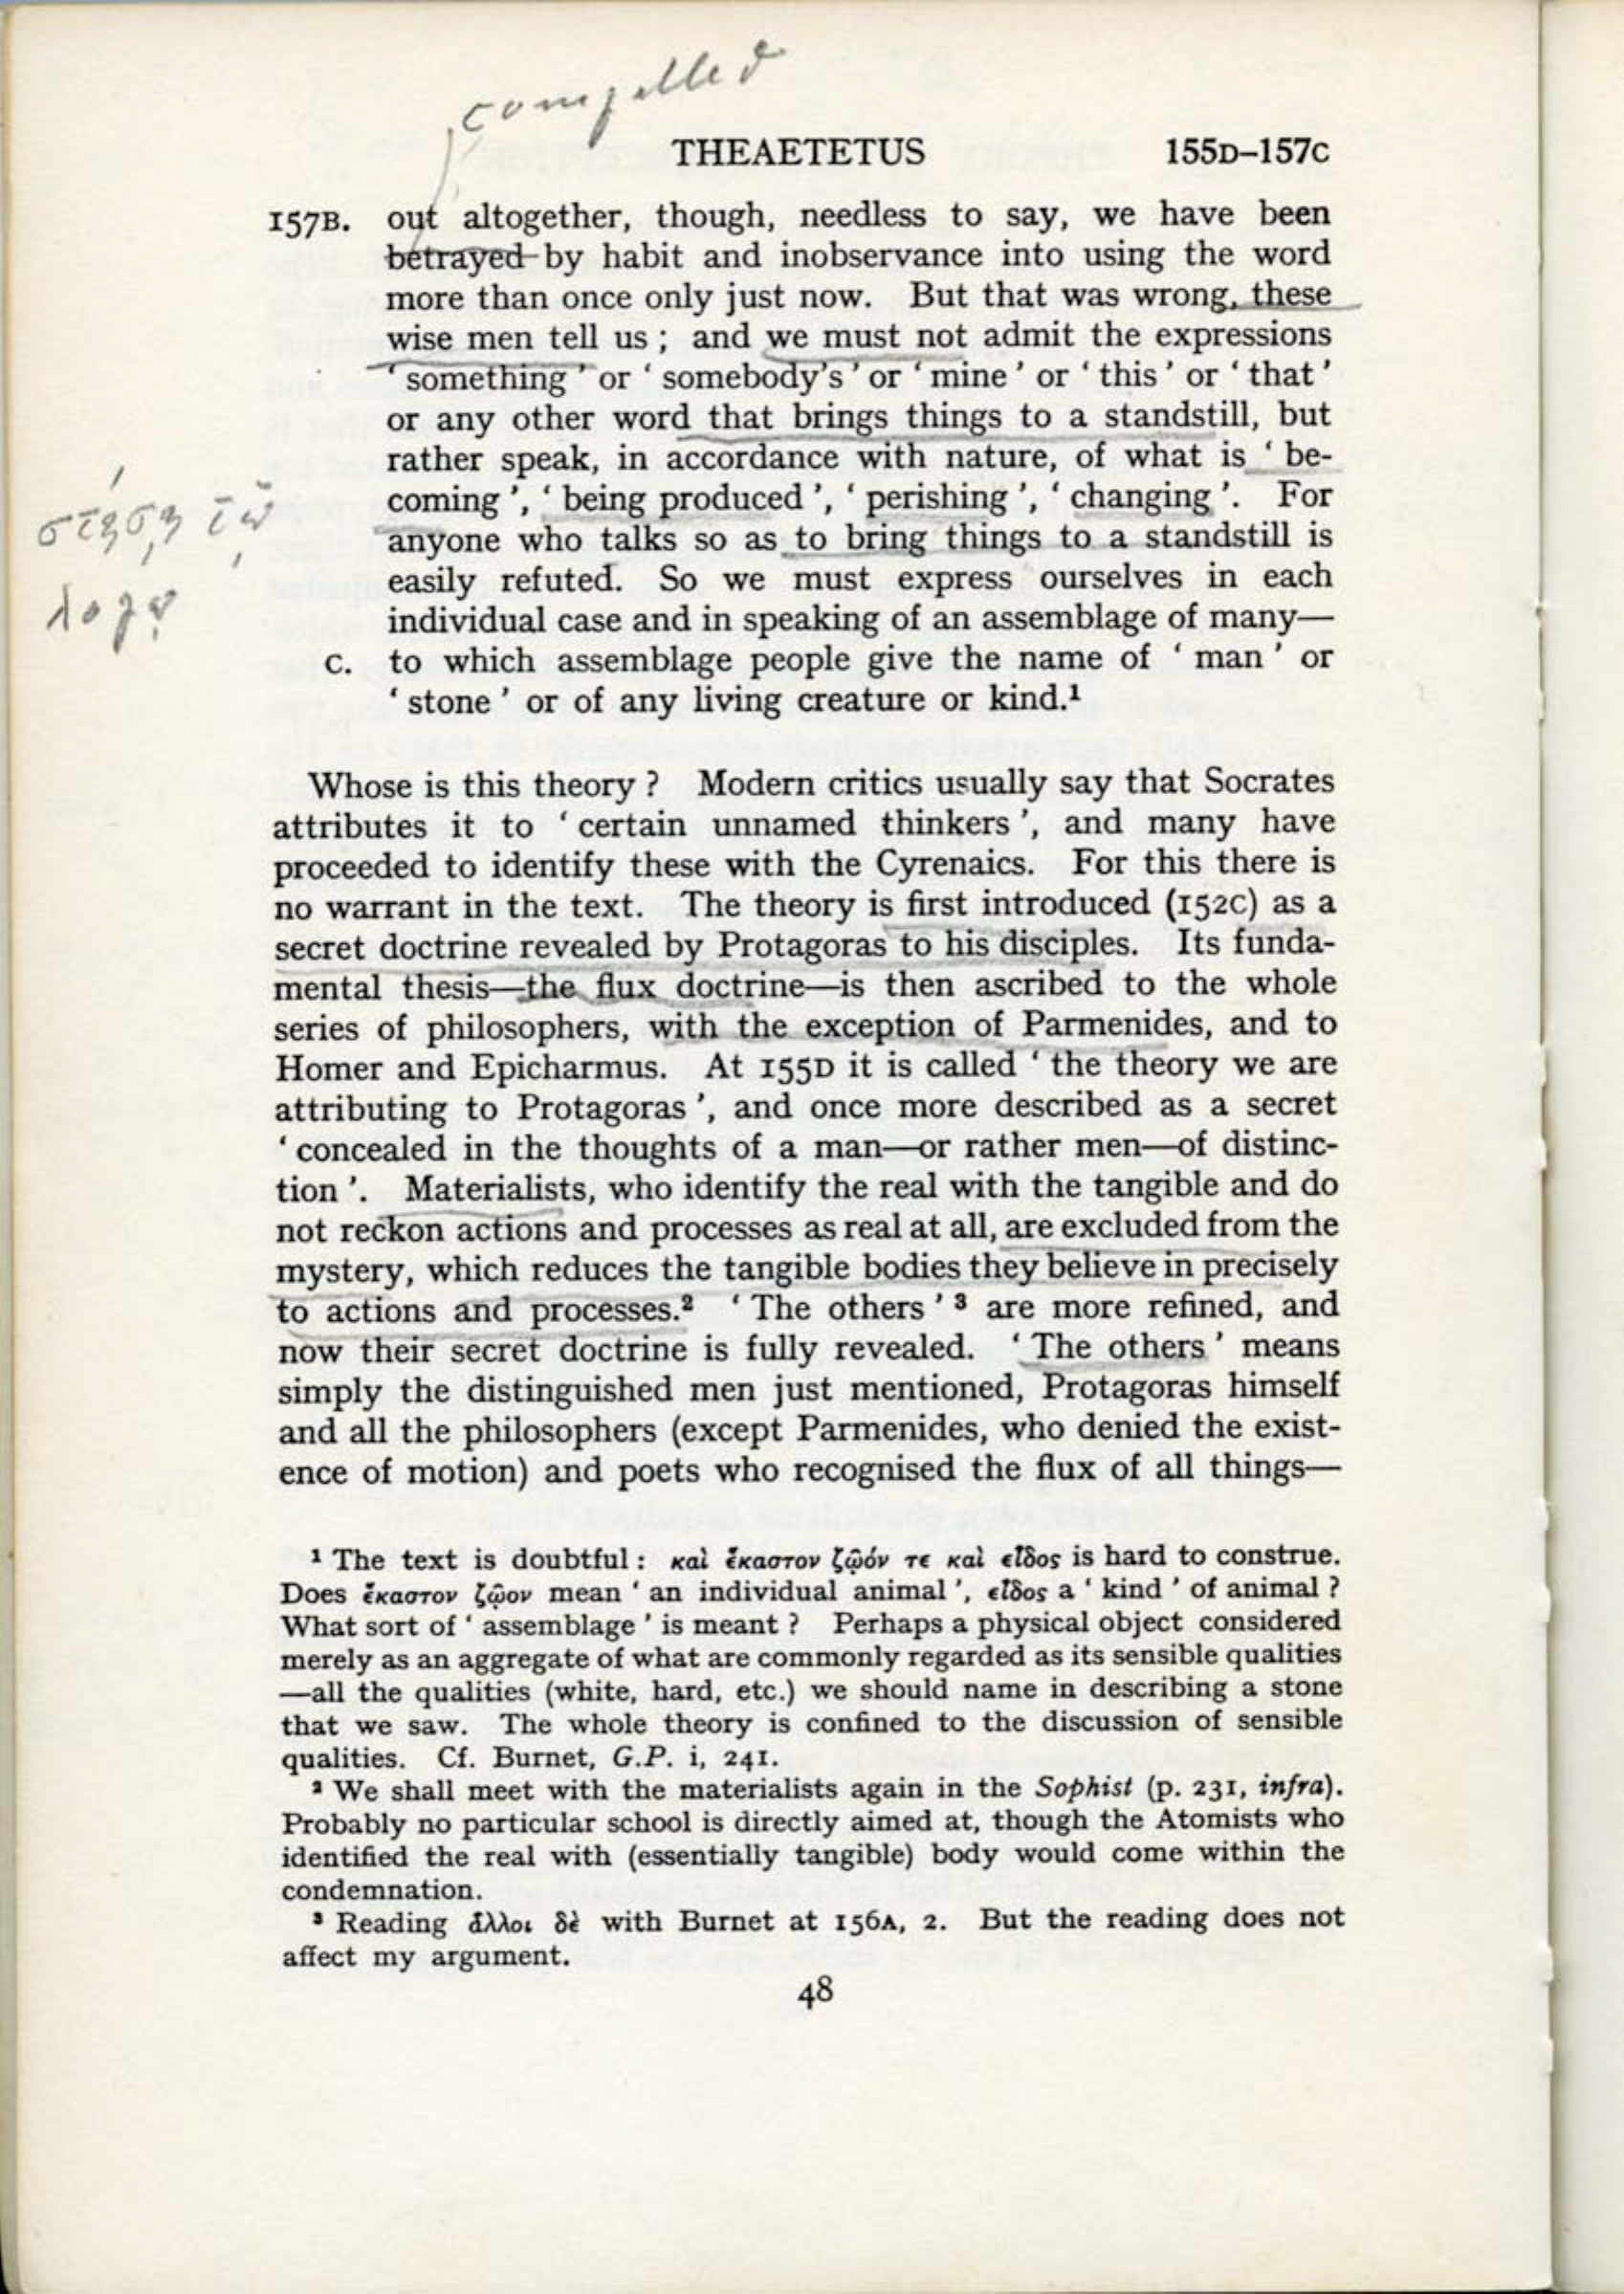 compelled
THEAETETUS 155D–157C
157B. out altogether, though, needless to say, we have been
betrayed by habit and inobservance into using the word
more than once only just now. But that was wrong, these
wise men tell us ; and we must not admit the expressions
‘ something ’ or ‘ somebody's ’ or ‘ mine ’ or ‘ this ’ or ‘ that ’
or any other word that brings things to a standstill, but
rather speak, in accordance with nature, of what is ‘ be-
coming ’, ‘ being produced ’, ‘ perishing ’, ‘ changing ’. For
anyone who talks so as to bring things to a standstill is
easily refuted. So we must express ourselves in each
individual case and in speaking of an assemblage of many—
C. to which assemblage people give the name of ‘ man ’ or
‘ stone ’ or of any living creature or kind.¹
στήσῃ τῷ
λόγῳ
Whose is this theory ? Modern critics usually say that Socrates
attributes it to ‘ certain unnamed thinkers ’, and many have
proceeded to identify these with the Cyrenaics. For this there is
no warrant in the text. The theory is first introduced (152C) as a
secret doctrine revealed by Protagoras to his disciples. Its funda-
mental thesis—the flux doctrine—is then ascribed to the whole
series of philosophers, with the exception of Parmenides, and to
Homer and Epicharmus. At 155D it is called ‘ the theory we are
attributing to Protagoras ’, and once more described as a secret
‘ concealed in the thoughts of a man—or rather men—of distinc-
tion ’. Materialists, who identify the real with the tangible and do
not reckon actions and processes as real at all, are excluded from the
mystery, which reduces the tangible bodies they believe in precisely
to actions and processes.² ‘ The others ’ ³ are more refined, and
now their secret doctrine is fully revealed. ‘ The others ’ means
simply the distinguished men just mentioned, Protagoras himself
and all the philosophers (except Parmenides, who denied the exist-
ence of motion) and poets who recognised the flux of all things—
¹ The text is doubtful : καὶ ἕκαστον ζῷόν τε καὶ εἶδος is hard to construe.
Does ἕκαστον ζῷον mean ‘ an individual animal ’, εἶδος a ‘ kind ’ of animal ?
What sort of ‘ assemblage ’ is meant ? Perhaps a physical object considered
merely as an aggregate of what are commonly regarded as its sensible qualities
—all the qualities (white, hard, etc.) we should name in describing a stone
that we saw. The whole theory is confined to the discussion of sensible
qualities. Cf. Burnet, G.P. i, 241.
² We shall meet with the materialists again in the Sophist (p. 231, infra).
Probably no particular school is directly aimed at, though the Atomists who
identified the real with (essentially tangible) body would come within the
condemnation.
³ Reading ἄλλοι δὲ with Burnet at 156A, 2. But the reading does not
affect my argument.
48